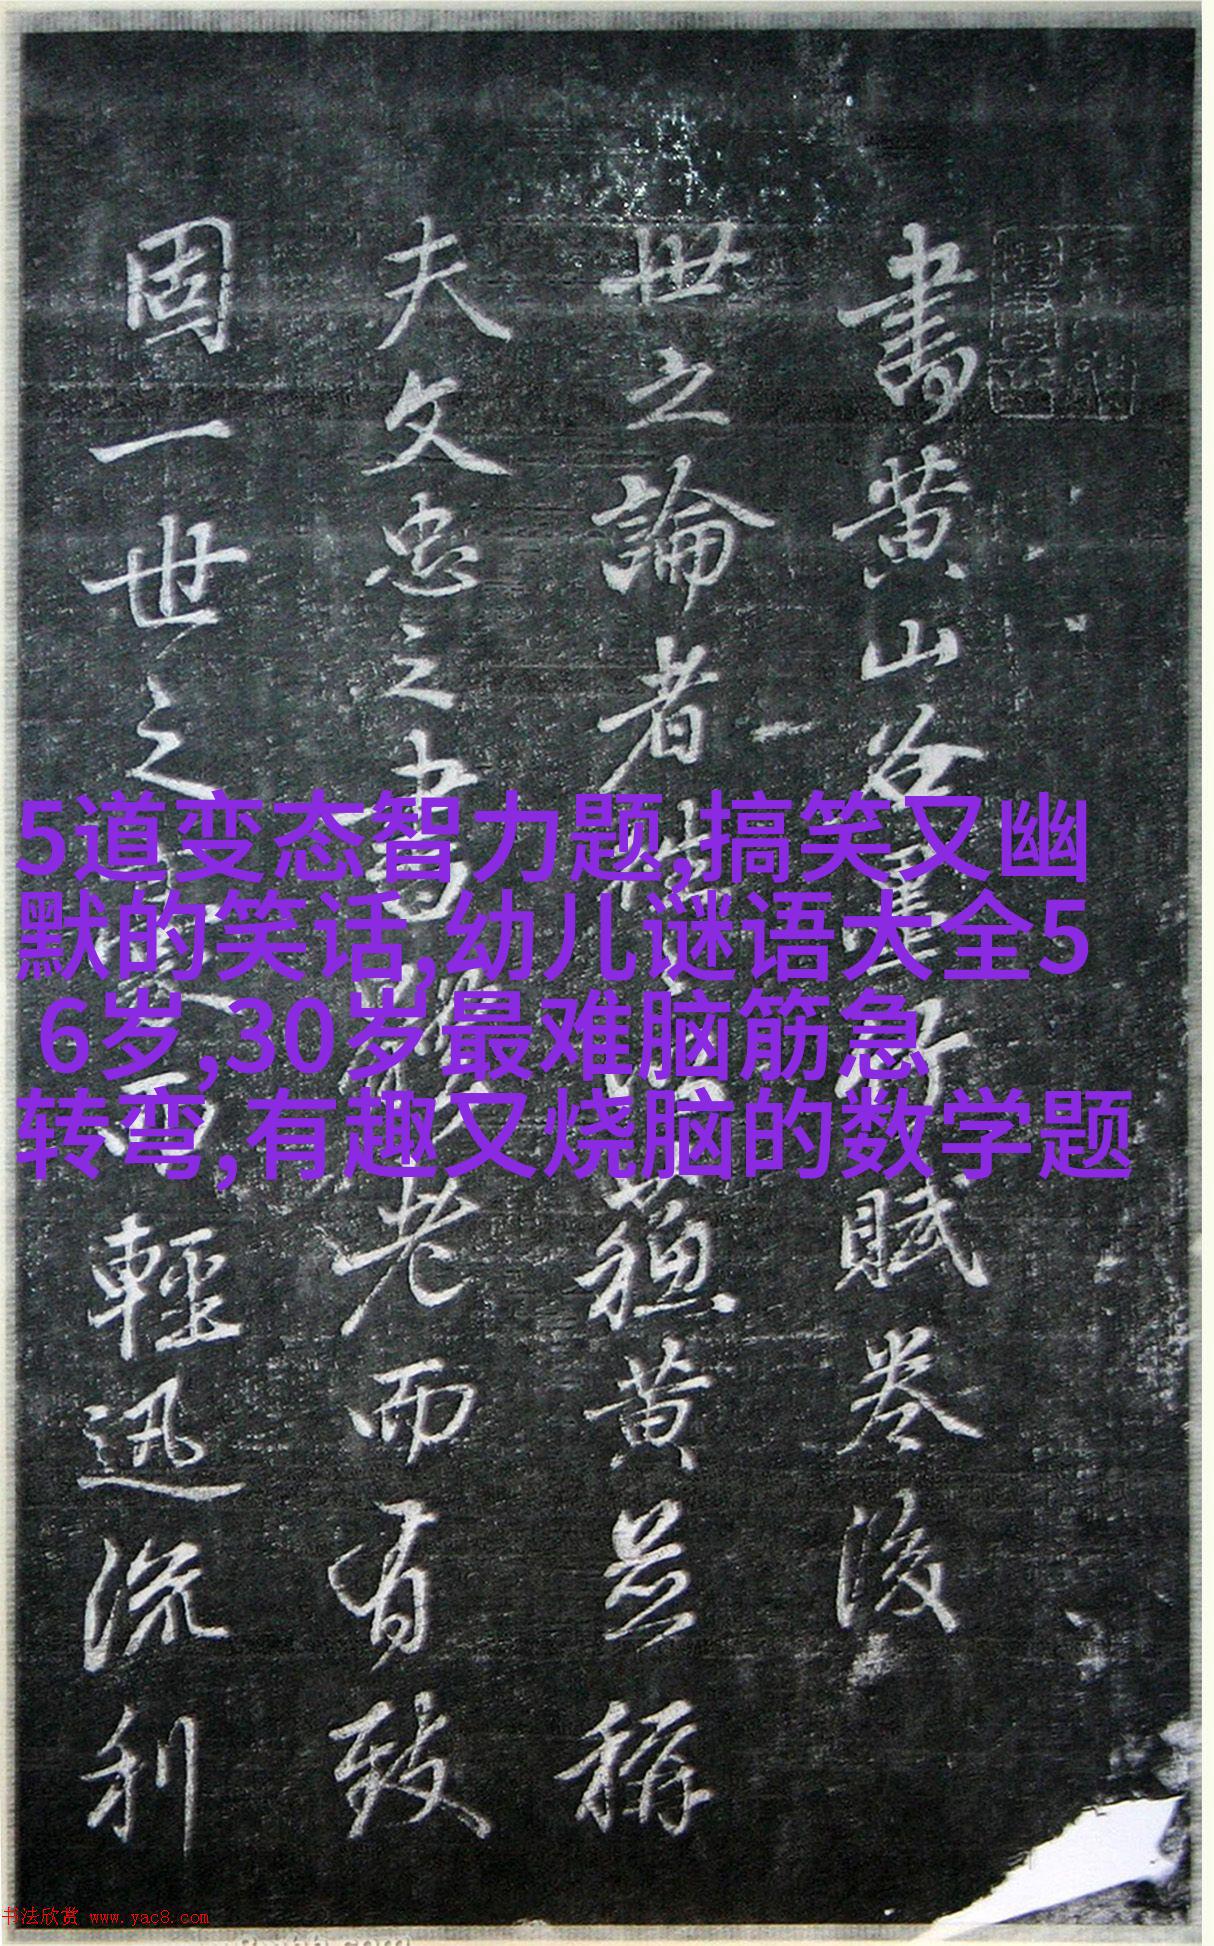 書黄山谷賦卷後
世之論者蘓黄並稱
夫文忠之書老而有致
固一世之輕迅流利
5道变态智力题,搞笑又幽
默的笑话,幼儿谜语大全5
6岁,30岁最难脑筋急
转弯,有趣又烧脑的数学题
书法欣赏 www.yac8.com